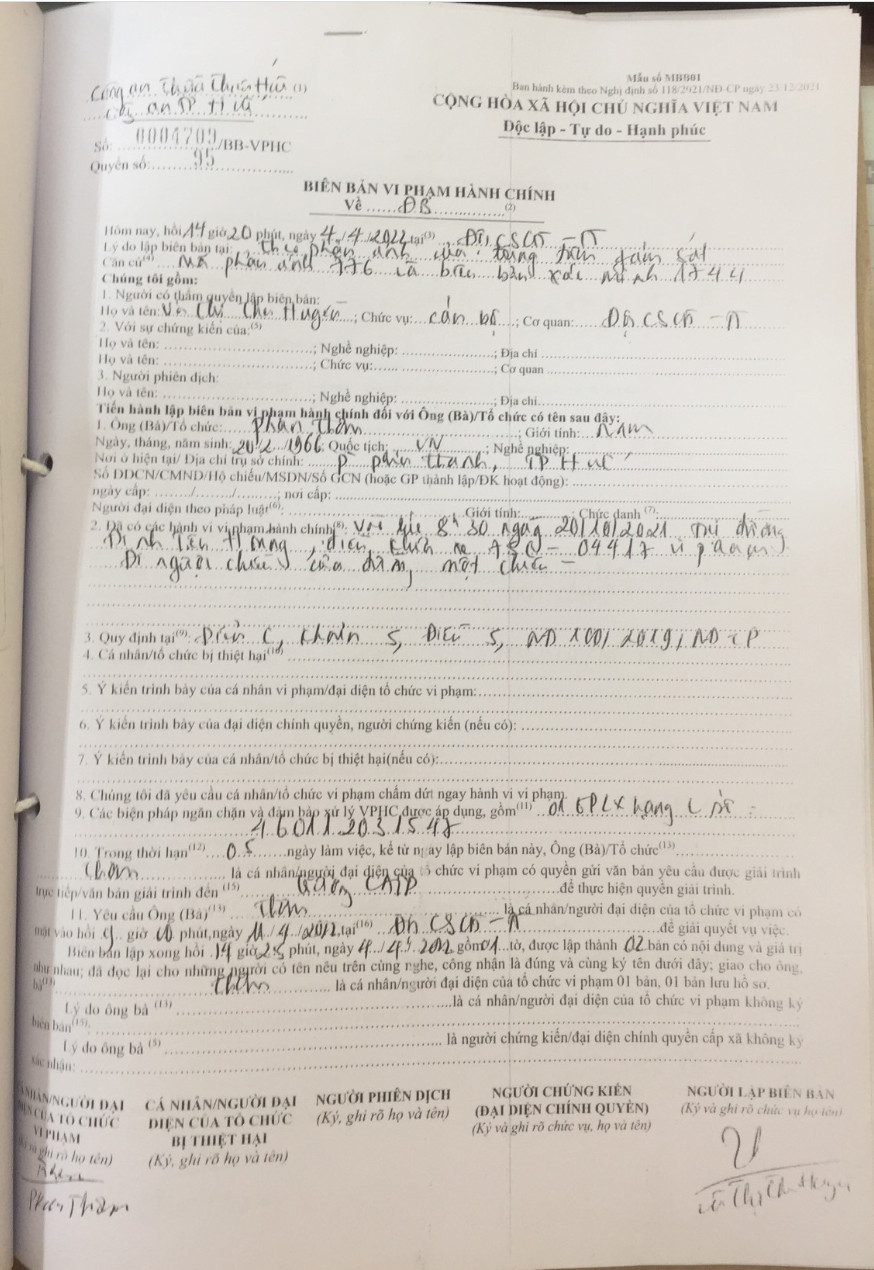 Mẫu số MBB01
Ban hành kèm theo Nghị định số 118/2021/NĐ-CP ngày 23/12/2021
Công an Thừa Thiên Huế (1)
Công an TP. Huế
CỘNG HÒA XÃ HỘI CHỦ NGHĨA VIỆT NAM
Độc lập - Tự do - Hạnh phúc
Số: 0004709/BB-VPHC
Quyển số: 95
BIÊN BẢN VI PHẠM HÀNH CHÍNH
Về ĐB (2)
Hôm nay, hồi 14 giờ 20 phút, ngày 4/4/2022 tại(3) Đội CSGT - TT
Lý do lập biên bản tại: theo phản ánh của trung tâm giám sát
Căn cứ(4) Mã phản ánh 776 và biên bản xác minh 1744
Chúng tôi gồm:
1. Người có thẩm quyền lập biên bản:
Họ và tên: Võ Thị Thu Huyền; Chức vụ: cán bộ; Cơ quan: Đội CSGT - TT
2. Với sự chứng kiến của:(5)
Họ và tên: ; Nghề nghiệp: ; Địa chỉ
Họ và tên: ; Chức vụ: ; Cơ quan
3. Người phiên dịch:
Họ và tên: ; Nghề nghiệp: ; Địa chỉ
Tiến hành lập biên bản vi phạm hành chính đối với Ông (Bà)/Tổ chức có tên sau đây:
1. Ông (Bà)/Tổ chức: Phan Thơm; Giới tính: Nam
Ngày, tháng, năm sinh: 20/2/1966; Quốc tịch: VN; Nghề nghiệp:
Nơi ở hiện tại/ Địa chỉ trụ sở chính: P. , TP Huế
Số DDCN/CMND/Hộ chiếu/MSDN/Số GCN (hoặc GP thành lập/ĐK hoạt động):
ngày cấp: / / ; nơi cấp:
Người đại diện theo pháp luật(6): Giới tính: ; Chức danh (7)
2. Đã có các hành vi vi phạm hành chính(8): Vào lúc 8h30 ngày 20/10/2021 tại đường
Đinh Tiên Hoàng, điều khiển xe 75C - 04417 vi phạm
Đi ngược chiều của đường một chiều -
3. Quy định tại(9): Điểm c, khoản 5, Điều 5, NĐ 100/2019/NĐ-CP
4. Cá nhân/tổ chức bị thiệt hại(10)
5. Ý kiến trình bày của cá nhân vi phạm/đại diện tổ chức vi phạm:
6. Ý kiến trình bày của đại diện chính quyền, người chứng kiến (nếu có):
7. Ý kiến trình bày của cá nhân/tổ chức bị thiệt hại(nếu có):
8. Chúng tôi đã yêu cầu cá nhân/tổ chức vi phạm chấm dứt ngay hành vi vi phạm.
9. Các biện pháp ngăn chặn và đảm bảo xử lý VPHC được áp dụng, gồm(11) 01 GPLX hạng C số:
460112031547
10. Trong thời hạn(12) 05 ngày làm việc, kể từ ngày lập biên bản này, Ông (Bà)/Tổ chức(13)
Thơm là cá nhân/người đại diện của tổ chức vi phạm có quyền gửi văn bản yêu cầu được giải trình
trực tiếp/văn bản giải trình đến (15) CATP để thực hiện quyền giải trình.
11. Yêu cầu Ông (Bà)(13) Thơm là cá nhân/người đại diện của tổ chức vi phạm có
mặt vào hồi 9 giờ 00 phút, ngày 11/4/2022, tại(16) Đội CSGT - TT để giải quyết vụ việc.
Biên bản lập xong hồi 14 giờ 25 phút, ngày 4/4/2022 gồm 01 tờ, được lập thành 02 bản có nội dung và giá trị
như nhau; đã đọc lại cho những người có tên nêu trên cùng nghe, công nhận là đúng và cùng ký tên dưới đây; giao cho ông,
bà(13) Thơm là cá nhân/người đại diện của tổ chức vi phạm 01 bản, 01 bản lưu hồ sơ.
Lý do ông bà (13) là cá nhân/người đại diện của tổ chức vi phạm không ký
biên bản
Lý do ông bà (5) là người chứng kiến/đại diện chính quyền cấp xã không ký
xác nhận:
CÁ NHÂN/NGƯỜI ĐẠI
DIỆN CỦA TỔ CHỨC
VI PHẠM
(Ký và ghi rõ họ tên)
Thơm
Phan Thơm
CÁ NHÂN/NGƯỜI ĐẠI
DIỆN CỦA TỔ CHỨC
BỊ THIỆT HẠI
(Ký, ghi rõ họ và tên)
NGƯỜI PHIÊN DỊCH
(Ký, ghi rõ họ và tên)
NGƯỜI CHỨNG KIẾN
(ĐẠI DIỆN CHÍNH QUYỀN)
(Ký và ghi rõ chức vụ, họ và tên)
NGƯỜI LẬP BIÊN BẢN
(Ký và ghi rõ chức vụ họ tên)
Võ Thị Thu Huyền